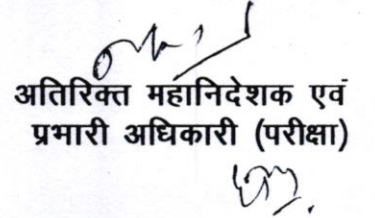 अतिरिक्त महानिदेशक एवं
प्रभारी अधिकारी (परीक्षा)